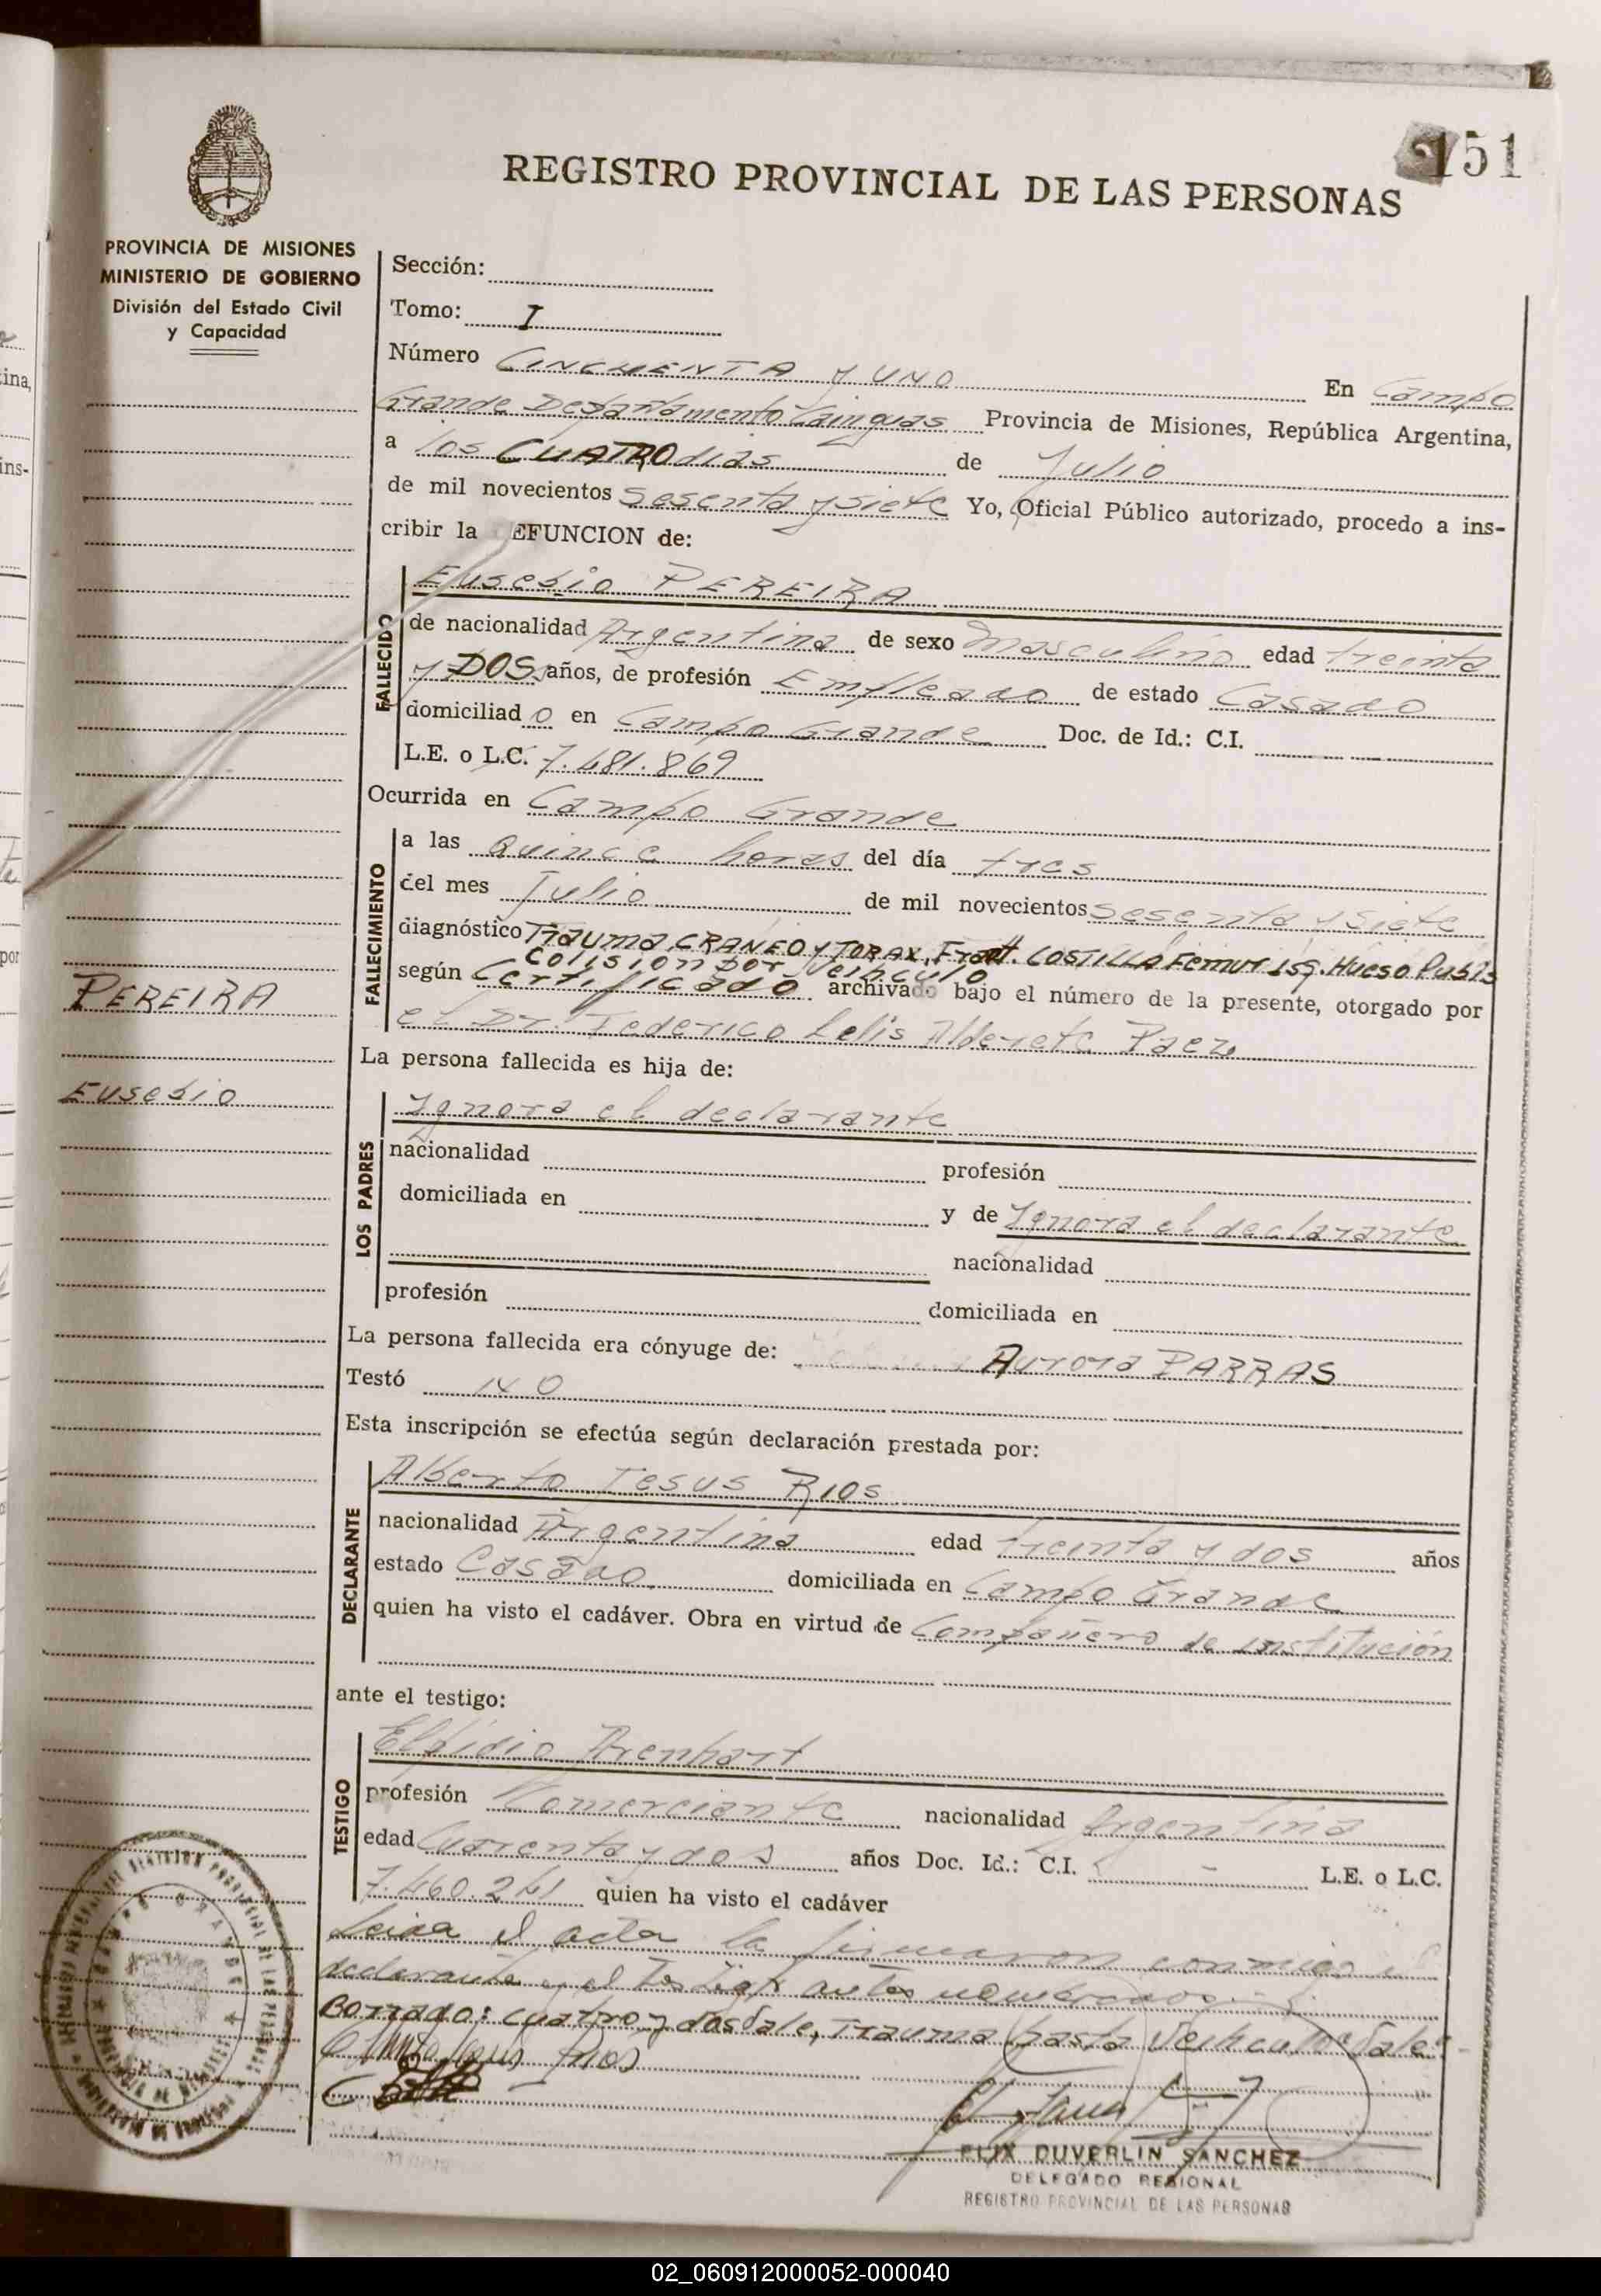 151
REGISTRO PROVINCIAL DE LAS PERSONAS
PROVINCIA DE MISIONES
MINISTERIO DE GOBIERNO
División del Estado Civil
y Capacidad
Sección:
Tomo: I
Número CINCUENTA y UNO En Campo
Grande Departamento Cainguas Provincia de Misiones, República Argentina,
a los CUATRO dias de Julio
de mil novecientos sesenta y siete Yo, Oficial Público autorizado, procedo a ins-
cribir la EFUNCION de:
FALLECIDO
Eusebio PEREIRA
de nacionalidad Argentina de sexo masculino edad treinta
y DOS años, de profesión Empleado de estado Casado
domiciliado en Campo Grande Doc. de Id.: C.I.
L.E. o L.C. 7.481.869
Ocurrida en Campo Grande
FALLECIMIENTO
a las Quince horas del día tres
del mes Julio de mil novecientos sesenta y siete
diagnóstico Trauma CRANEO y TORAX, Fratt. COSTILLA Femur isq. Hueso Pubis
Colision por Veihculo
según Certificado archivado bajo el número de la presente, otorgado por
el Dr. Federico Lelis Alderete Paez
PEREIRA
Eusebio
La persona fallecida es hija de:
LOS PADRES
Ignora el declarante
nacionalidad profesión
domiciliada en y de Ignora el declarante
nacionalidad
profesión domiciliada en
La persona fallecida era cónyuge de: Aurora PARRAS
Testó NO
Esta inscripción se efectúa según declaración prestada por:
DECLARANTE
Alberto Jesus RIOS
nacionalidad Argentina edad treinta y dos años
estado Casado. domiciliada en Campo Grande
quien ha visto el cadáver. Obra en virtud de Compañero de institución
ante el testigo:
TESTIGO
Elpidio Arenhart
profesión Comerciante nacionalidad Argentina
edad Cuarenta y dos años Doc. Id.: C.I. - L.E. o L.C.
7.460.241 quien ha visto el cadáver
Leida el acta la firmaron conmigo el
declarante y el testigo antes nombrados.
Borrado: cuatro y dos Vale, Trauma hasta Veihculo Vale
FELIX DUVERLIN SANCHEZ
DELEGADO REGIONAL
REGISTRO PROVINCIAL DE LAS PERSONAS
02_060912000052-000040